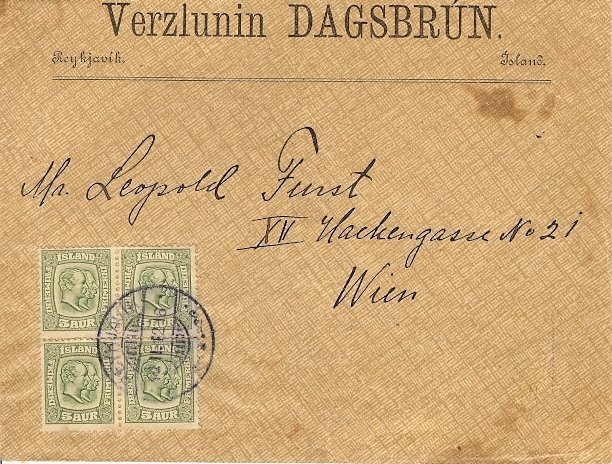 Verzlunin DAGSBRÚN.
Reykjavík. Ísland.
Mr. Leopold Furst
XV Hackengasse No 21
Wien
ÍSLAND ÍSLAND
FRÍMERKI FRÍMERKI
5 AUR 5 AUR
ÍSLAND ÍSLAND
FRÍMERKI FRÍMERKI
5 AUR 5 AUR
REYKJAVIK